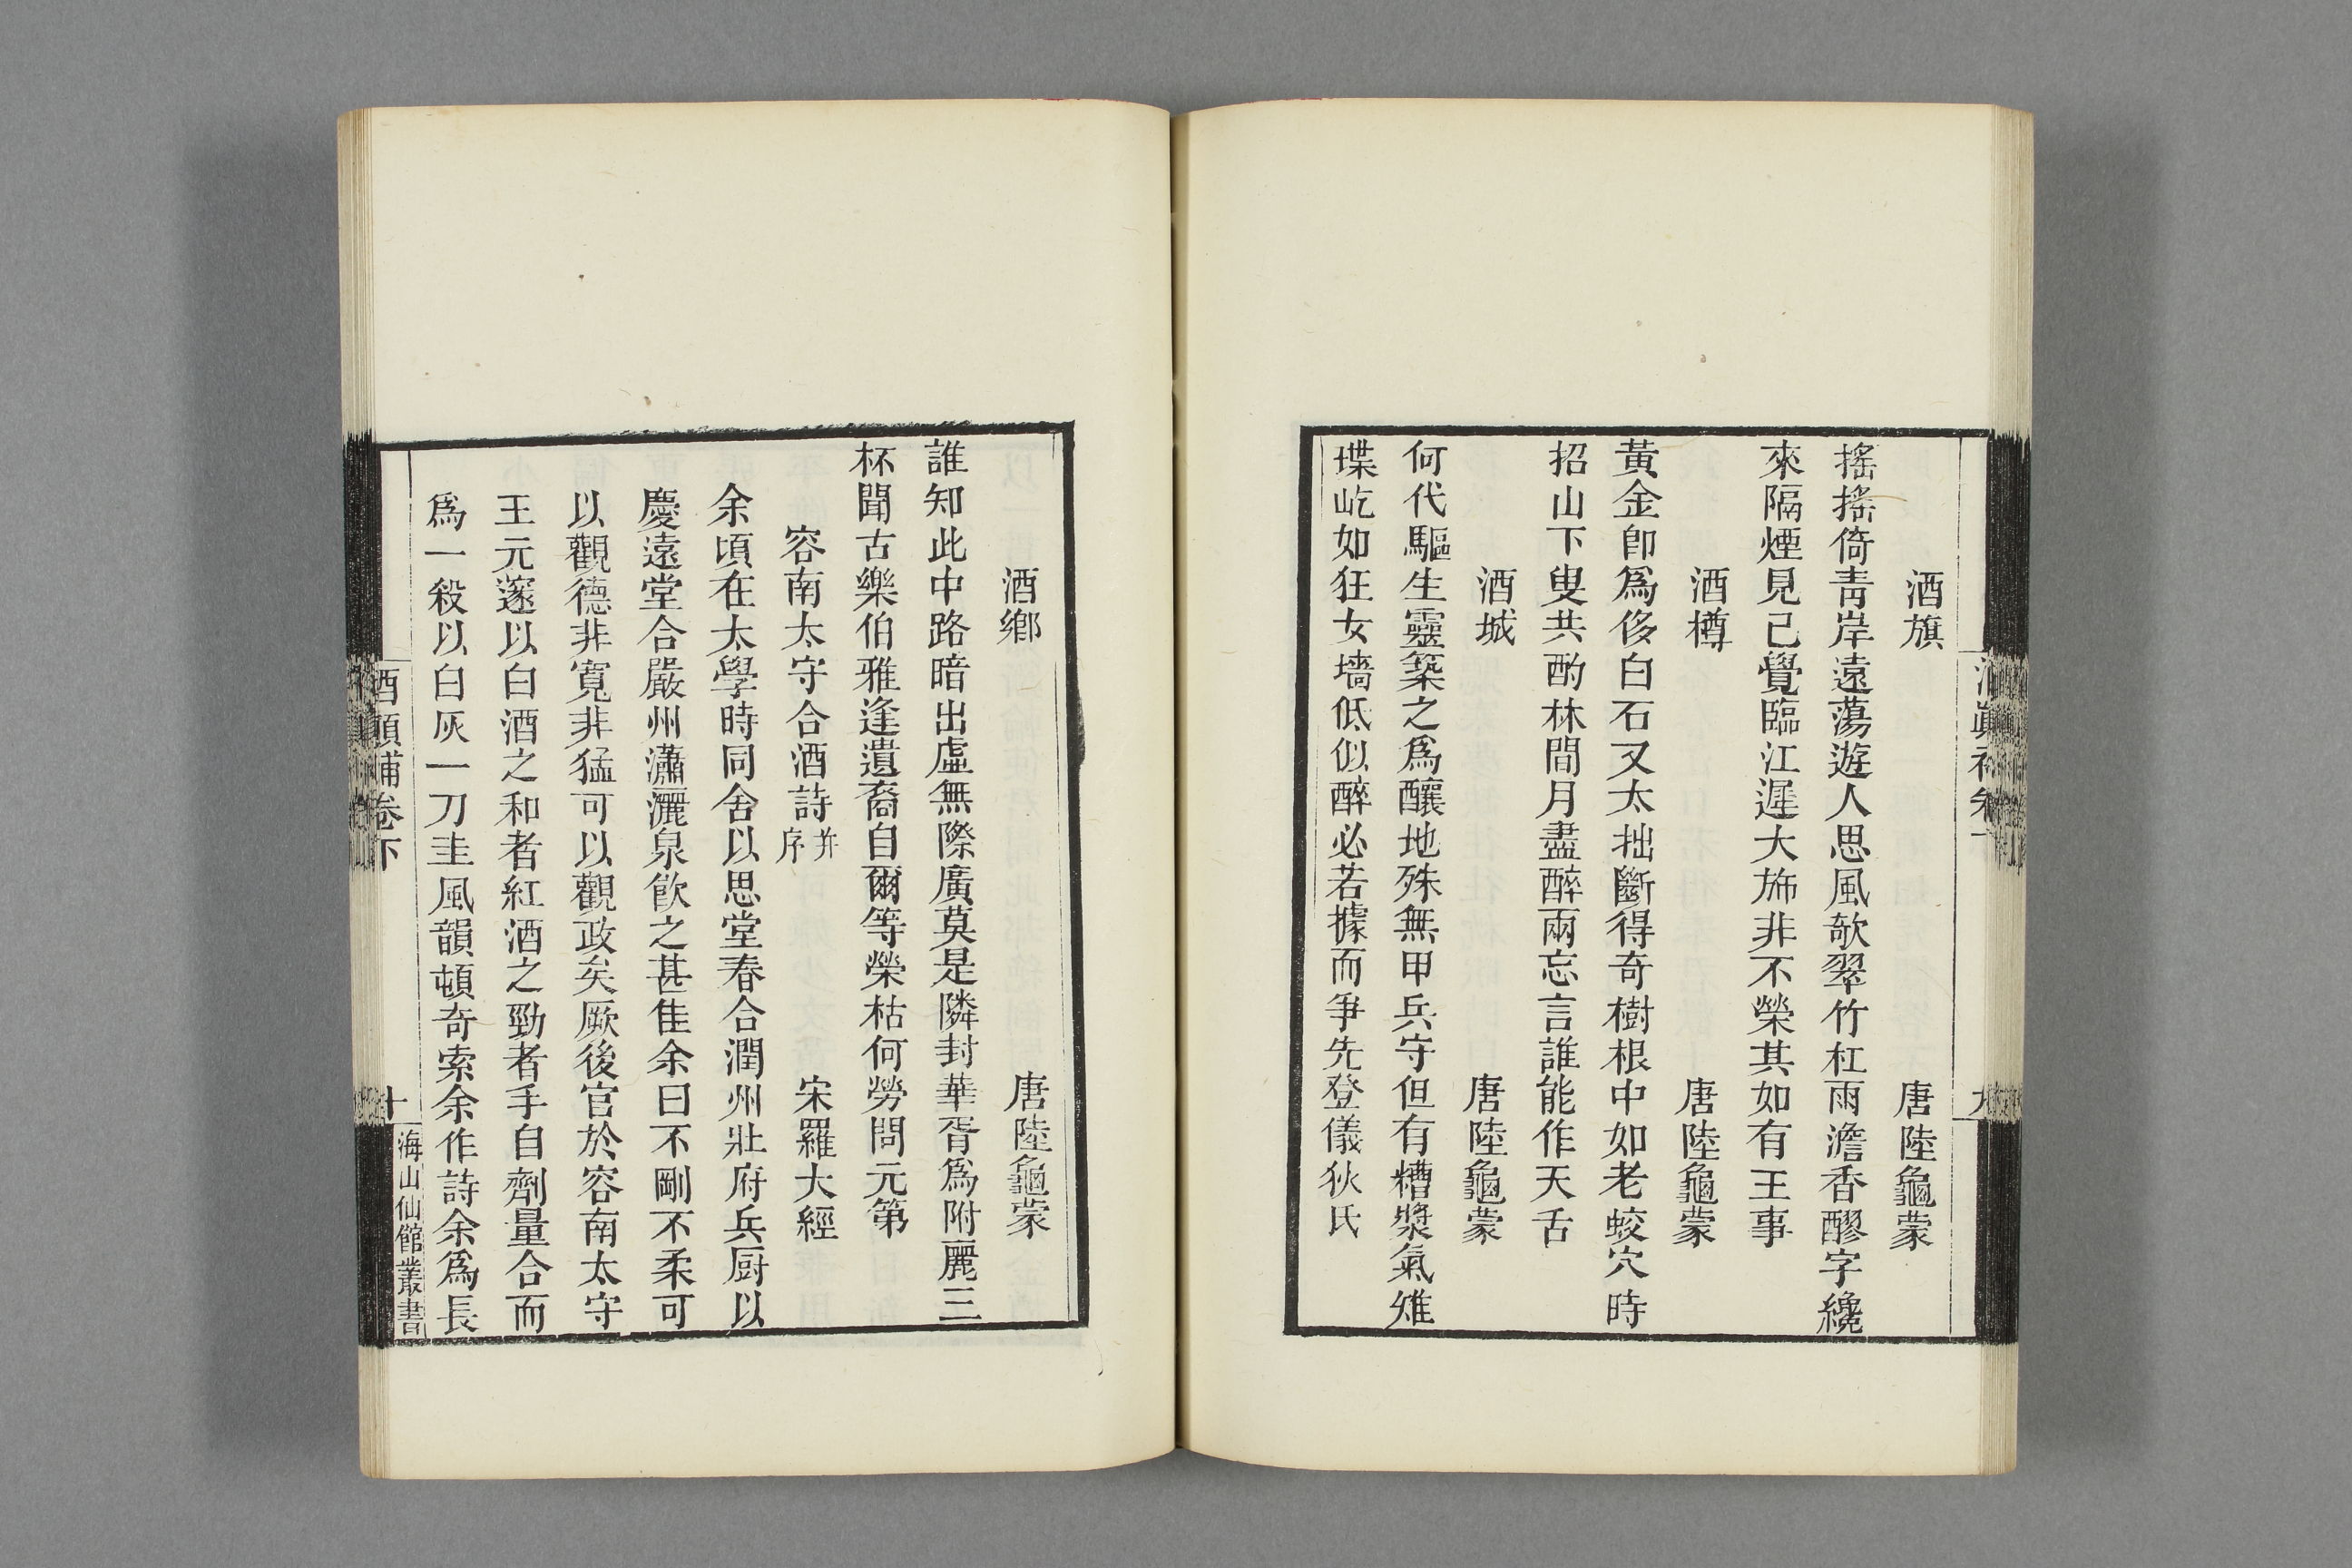 酒旗　唐陸龜蒙
搖搖倚青岸遠蕩遊人思風欹翠竹杠雨澹香醪字纔
來隔煙見已覺臨江遲大旆非不榮其如有王事
酒樽　唐陸龜蒙
黃金卽爲侈白石又太拙斷得奇樹根中如老蛟穴時
招山下叟共酌林間月盡醉兩忘言誰能作天舌
酒城　唐陸龜蒙
何代驅生靈築之爲釀地殊無甲兵守但有糟漿氣雉
堞屹如狂女墻低似醉必若據而爭先登儀狄氏
酒鄉　唐陸龜蒙
誰知此中路暗出虛無際廣莫是隣封華胥爲附麗三
杯聞古樂伯雅逢遺裔自爾等榮枯何勞問元第
容南太守合酒詩并序　宋羅大經
余頃在太學時同舍以思堂春合潤州壯府兵厨以
慶遠堂合嚴州瀟灑泉飲之甚佳余曰不剛不柔可
以觀德非寬非猛可以觀政矣厥後官於容南太守
王元邃以白酒之和者紅酒之勁者手自劑量合而
爲一殺以白灰一刀圭風韻頓奇索余作詩余爲長
酒顚補卷下
十
海山仙館叢書